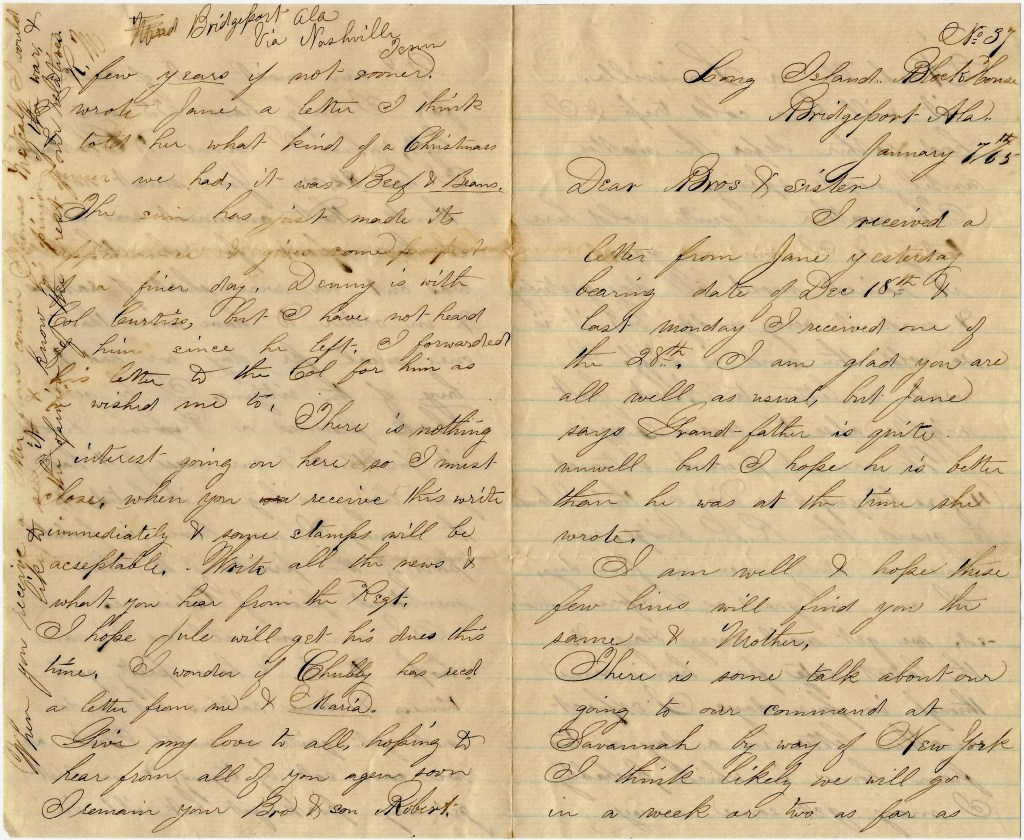 No 37
Long Island Block House
Bridgeport Ala.
January 7th/65
Dear Bros & sister
I received a
letter from Jane yesterday
bearing date of Dec 18th &
last monday I received one of
the 28th. I am glad you are
all well as usual, but Jane
says Grand-father is quite
unwell but I hope he is better
than he was at the time she
wrote.
I am well & hope these
few lines will find you the
same & Mother,
There is some talk about our
going to our command at
Savannah by way of New York
I think likely we will go
in a week or two as far as
Bridgeport Ala
Via Nashville
Tenn
few years if not sooner.
wrote Jane a letter I think
told her what kind of a Christmas
dinner we had, it was Beef & Beans.
The sun has just made its
appearance & gives some
a finer day. Denny is with
Col Curtiss, but I have not heard
him since he left. I forwarded
his letter to the Col for him as
wished me to,
There is nothing
interest going on here so I must
close, when you receive this write
immediately & some stamps will be
acseptable. Write all the news &
what you hear from the Regt.
I hope Jule will get his dues this
time. I wonder if Chubby has recd
a letter from me & Maria.
Give my love to all, hoping to
hear from all of you agen soon
I remain your Bro & son Robert.
When you receive a
like to see it & know the